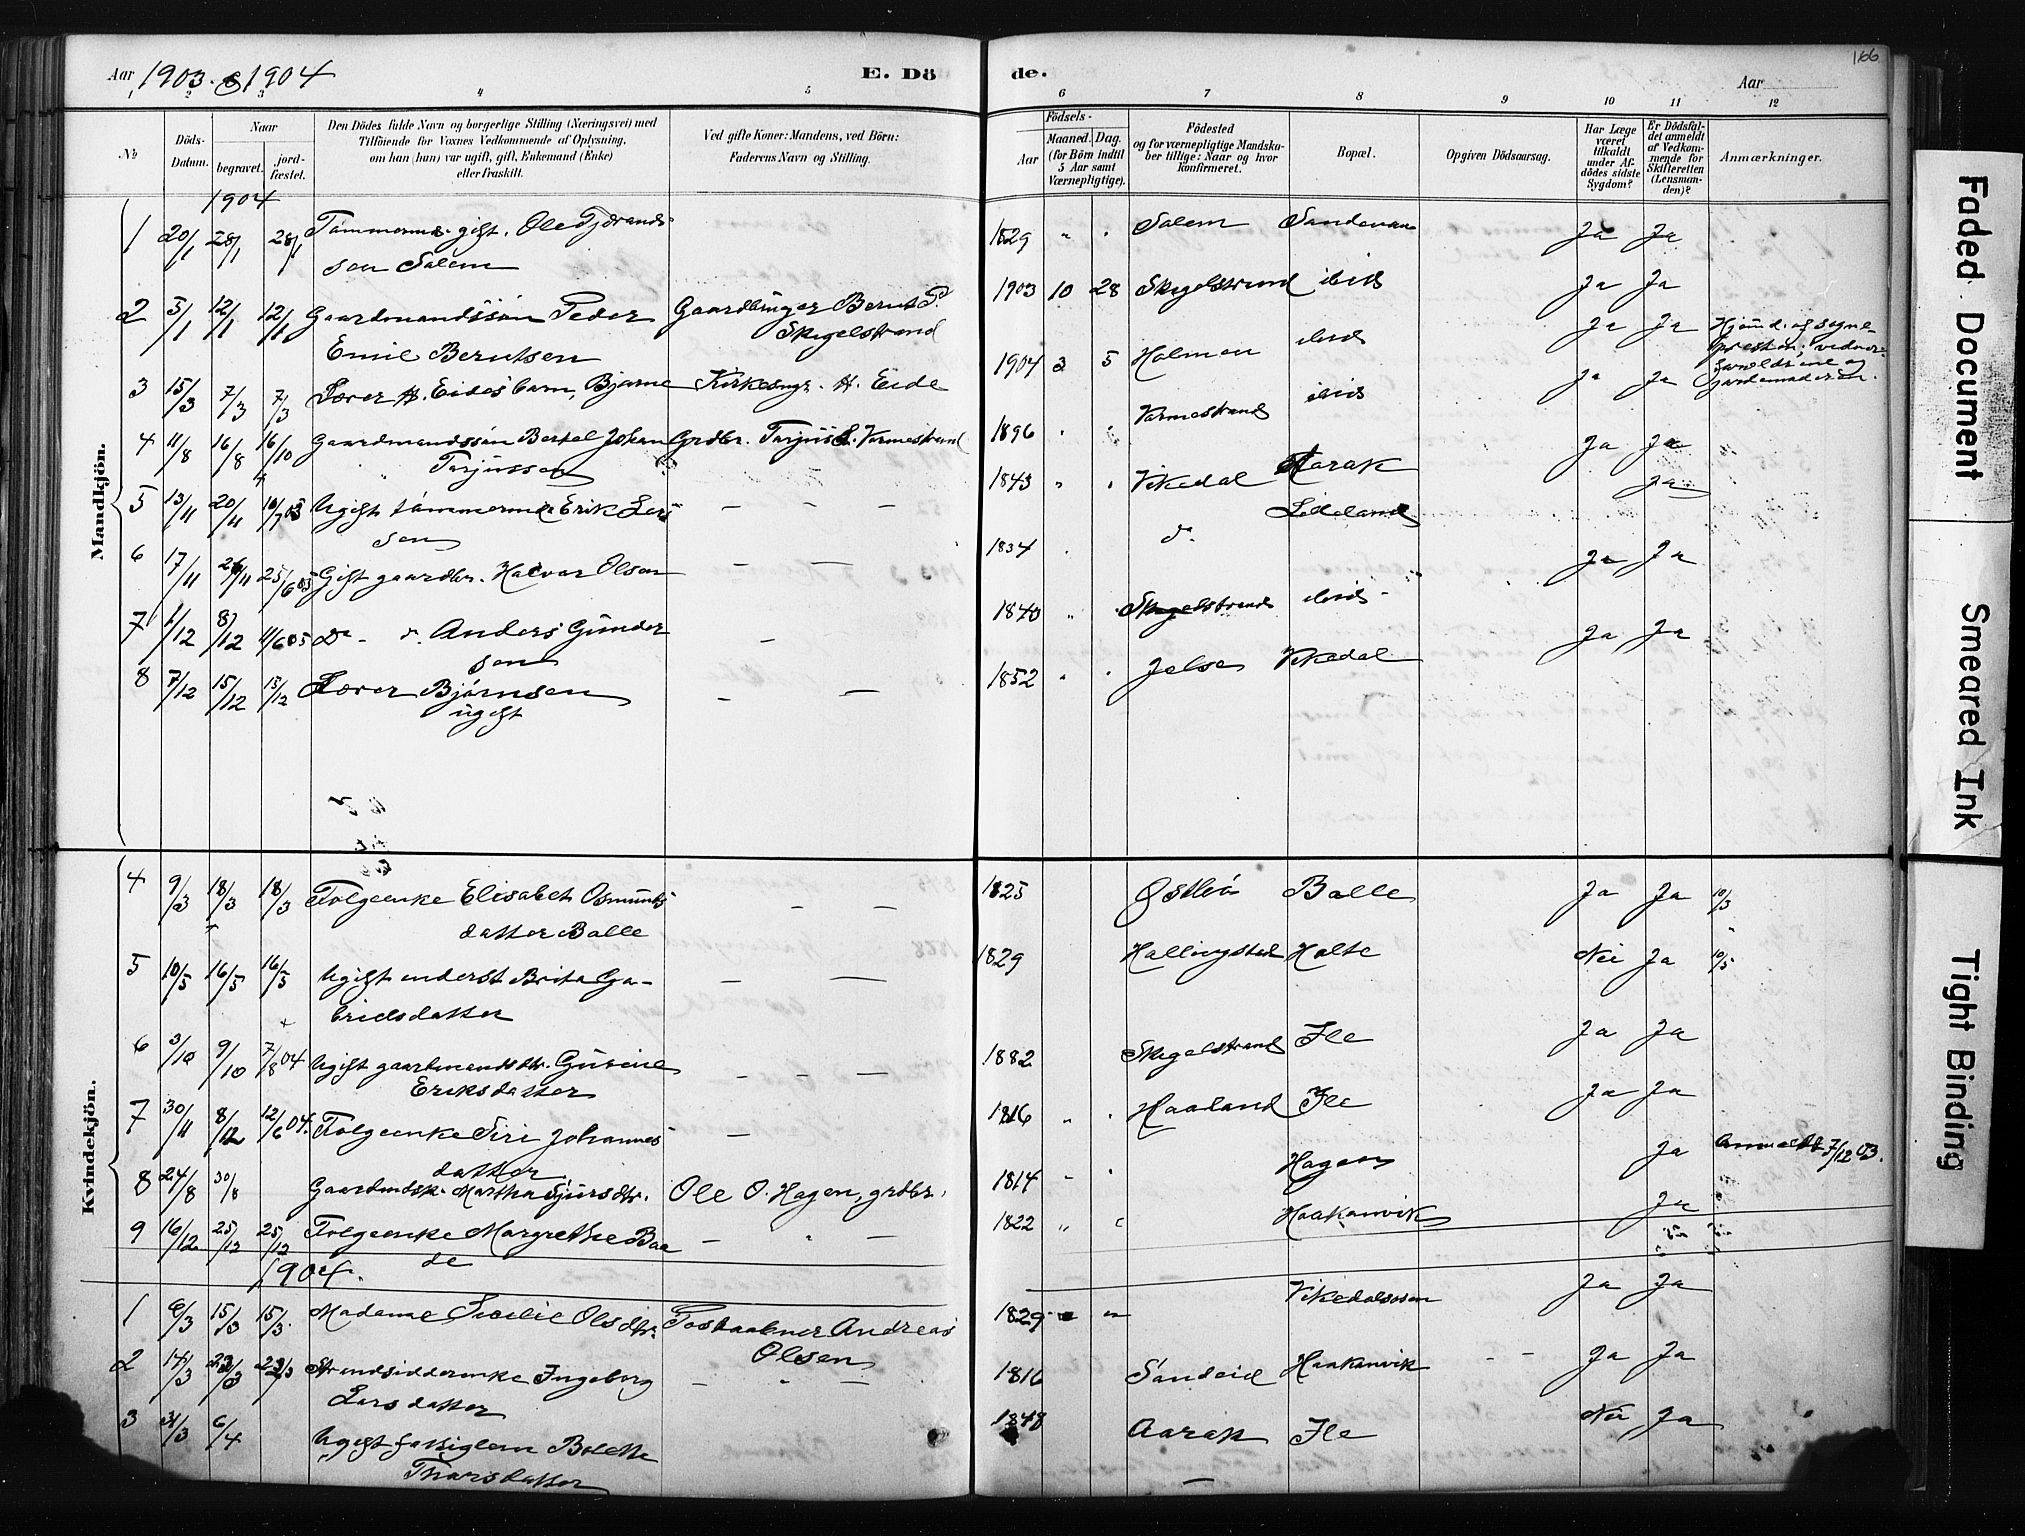 166
Aar 1903. & 1904
E. Dö de.
Aar
1 2 3 4 5 6 7 8 9 10 11 12
No
Döds-Datum.
Naar
begravet.
jord-fæstet.
Den Dödes fulde Navn og borgerlige Stilling (Næringsvei) med
Tilföiende for Voxnes Vedkommende af Oplysning,
om han (hun) var ugift, gift, Enkemand (Enke)
eller fraskilt.
Ved gifte Koner: Mandens, ved Börn:
Faderens Navn og Stilling.
Födsels-
Aar
Maaned. Dag.
(for Börn indtil
5 Aar samt
Værnepligtige).
Födested
og for værnepligtige Mandska-
ber tillige: Naar og hvor
konfirmeret.
Bopæl.
Opgiven Dödsaarsag.
Har Læge
været
tilkaldt
under Af-
dödes sidste
Sygdom?
Er Dödsfal-
det anmeldt
af Vedkom-
mende for
Skifteretten
(Lensman-
den)?
Anmærkninger.
Mandkjön.
1904
1 20/1 28/1 28/1 gift. Ole Tjerands- 1829 " " Salem Ja Ja
sen Salem
2 5/1 12/1 12/1 Gaardmandssön Peder Gaardbruger Bernt P. 1903 10 28 Skegelstrand ibid Ja Ja
Emil Berntsen Skegelstrand
3 15/3 7/3 7/3 Lærer H. Eides barn, Bjarne Kirkesngr. H. Eide 1904 3 5 Holmen ibid Ja Ja
4 11/8 16/8 16/10 Gaardmandssön Bertel Johan Grdbr. Tarjus L. Varmestrand 1896 " " Varmestrand ibid Ja Ja
Tarjussen
5 13/11 20/11 16/7 05 Ugift tömmermd Erik Lars- — — — 1843 " " Vikedal Aarak Ja Ja
sen
6 17/11 26/11 25/6 05 Gift gaardbr. Halvor Olsen — — 1834 do Lideland Ja
7 1/12 8/12 11/6 05 Do - do. Anders Gunder- — 1840 " " Skegelstrand ibid - Ja Ja
sen
8 7/12 15/12 15/12 Lærer Björnsen — — 1852 " " Jelse Vikedal Ja Ja
ugift
Kvindekjön.
4 9/3 18/3 18/3 Folgeenke Elisabet Osmunds- — — 1825 Östbö Balle Ja Ja 10/3
datter Balle
5 10/5 16/5 16/5 Ugift inderst Brita Ga- — — 1829 Hallingstad Holte Nei Ja 10/5
brielsdatter
6 3/10 9/10 7/8 04 Ugift gaardmandsdtr. Gurine — — — 1882 Skegelstrand Ile Ja Ja
Eriksdatter
7 30/11 8/12 12/6 04. Folgeenke Siri Johannes- — 1816 " " Haaland Ile Ja Ja
datter
8 24/8 30/8 Gaardmdsk. Martha Sjursdtr. Ole O. Hagen, grdbr. 1814 " " Hagen Ja Anmeldt 7/12 03.
9 16/12 25/12 25/12 Folgeenke Margrethe Baa- — " — 1822 " " Haakanvik Ja
de
1904.
1 6/3 15/3 15/3. Madame Secilie Olsdtr. Postaabner Andreas 1829 " " Vikedalsosen Ja Ja
Olsen
2 14/3 23/3 23/3 Strandsidderenke Ingeborg — " — 1816 Sandeid Haakanvik - - Ja Ja
Larsdatter
3 31/3 6/4 Ugift fattiglem Bolette 1848 Aarak Ile Nei Ja
Thorsdatter
Faded Document
Smeared Ink
Tight Binding